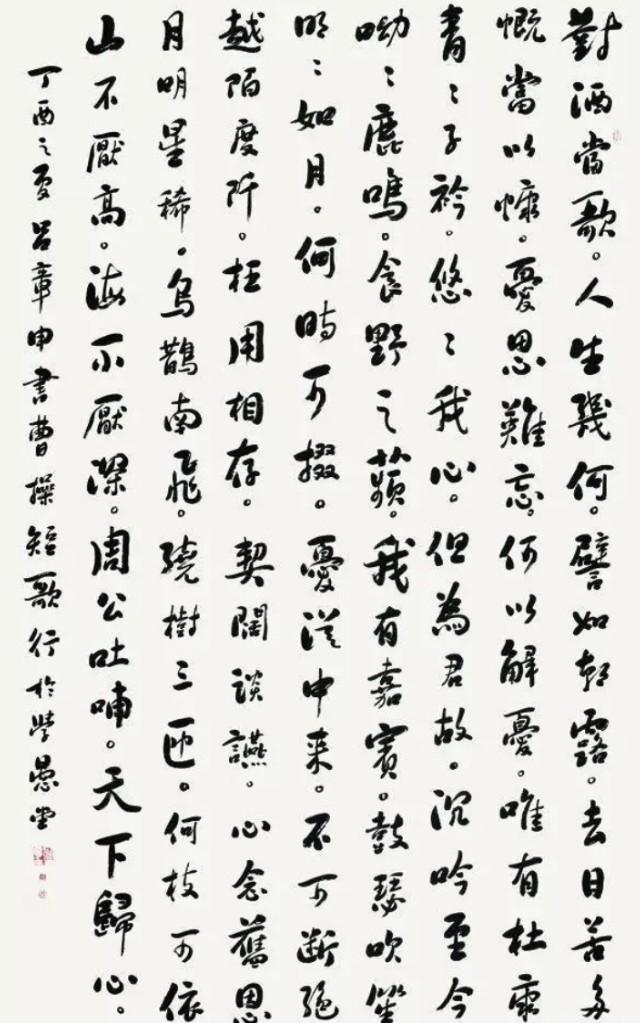 對酒當歌。人生幾何。譬如朝露。去日苦多
慨當以慷。憂思難忘。何以解憂。唯有杜康
青〻子衿。悠〻我心。但為君故。沉吟至今
呦〻鹿鳴。食野之蘋。我有嘉賓。鼓瑟吹笙
明〻如月。何時可掇。憂從中来。不可斷絕
越陌度阡。枉用相存。契闊談讌。心念舊恩
月明星稀。烏鵲南飛。繞樹三匝。何枝可依
山不厭高。海不厭深。周公吐哺。天下歸心。
丁酉之夏呂章申書曹操短歌行於